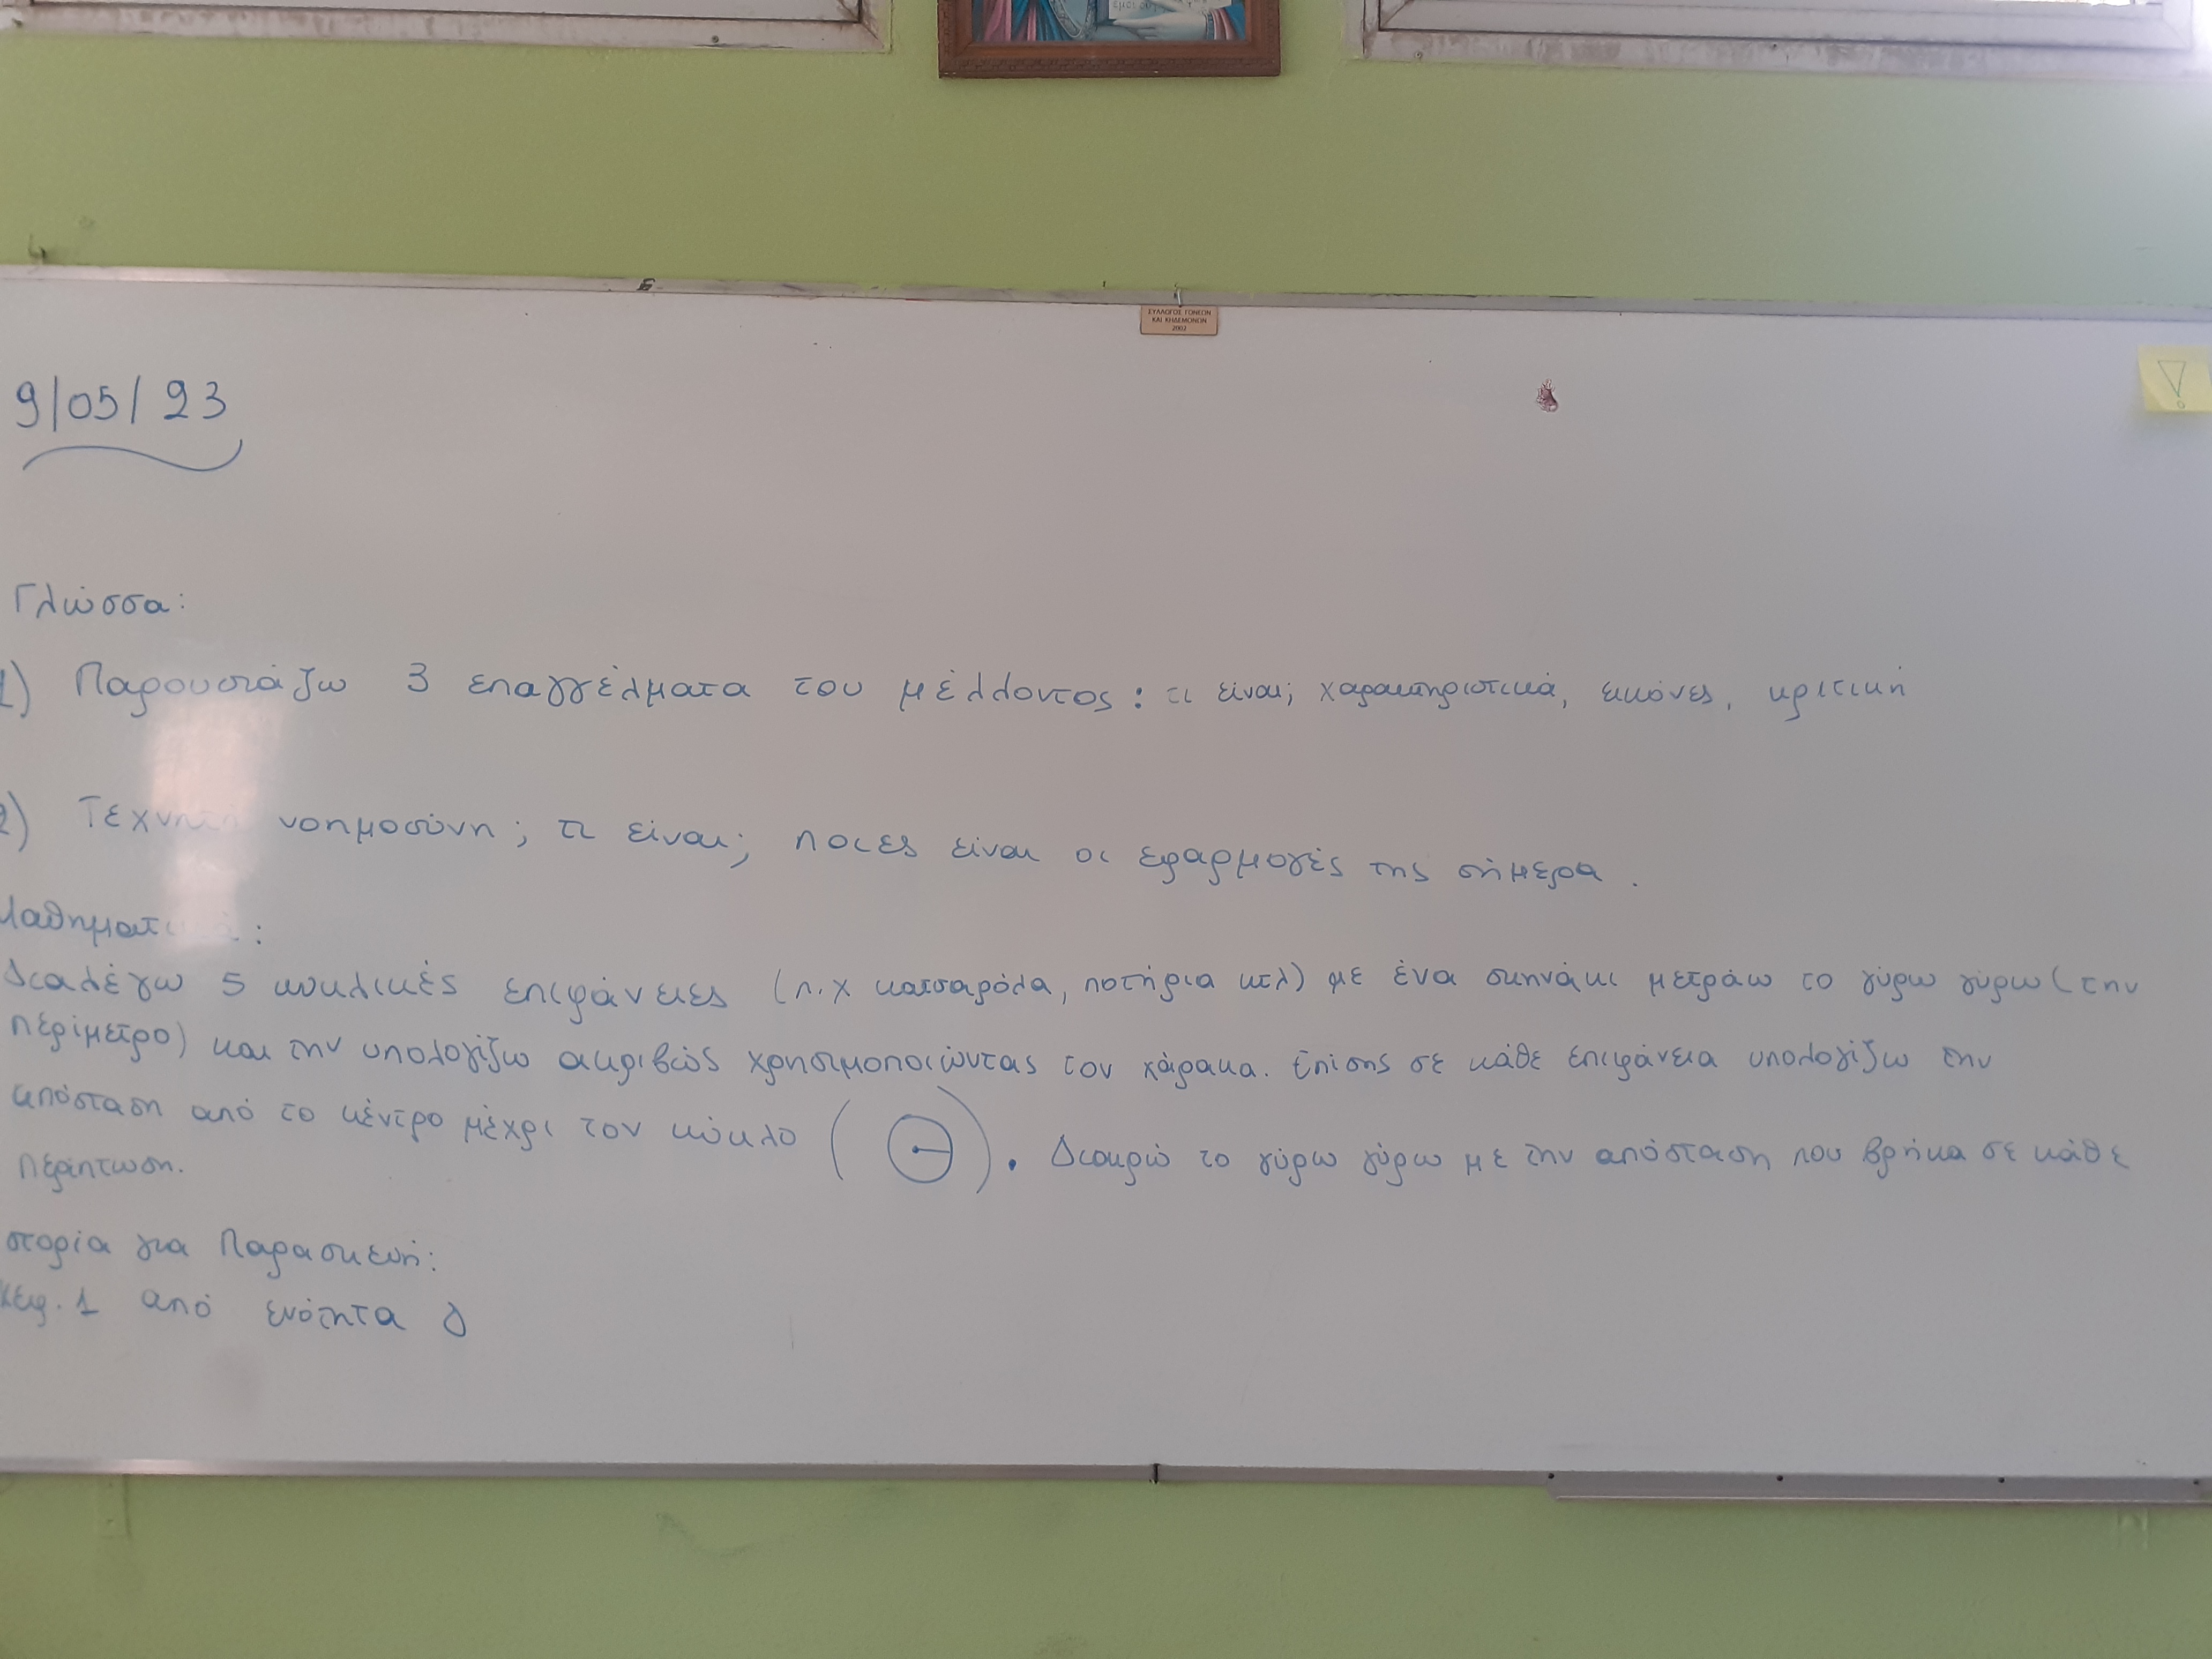 ΣΥΛΛΟΓΟΣ ΓΟΝΕΩΝ
ΚΑΙ ΚΗΔΕΜΟΝΩΝ
2002
9/05/23
Γλώσσα:
1) Παρουσιάζω 3 επαγγέλματα του μέλλοντος: τι είναι; χαρακτηριστικά, εικόνες, κριτική
2) Τεχνητή νοημοσύνη; τι είναι; ποιες είναι οι εφαρμογές της σήμερα.
Μαθηματικά:
Διαλέγω 5 κυκλικές επιφάνειες (π.χ κατσαρόλα, ποτήρια κτλ) με ένα σκηνάκι μετράω το γύρω γύρω (την
περίμετρο) και την υπολογίζω ακριβώς χρησιμοποιώντας τον χάρακα. Επίσης σε κάθε επιφάνεια υπολογίζω την
απόσταση από το κέντρο μέχρι τον κύκλο ( ). Διαιρώ το γύρω γύρω με την απόσταση που βρήκα σε κάθε
περίπτωση.
στορία για Παρασκευή:
Κεφ. 1 από ενότητα Δ